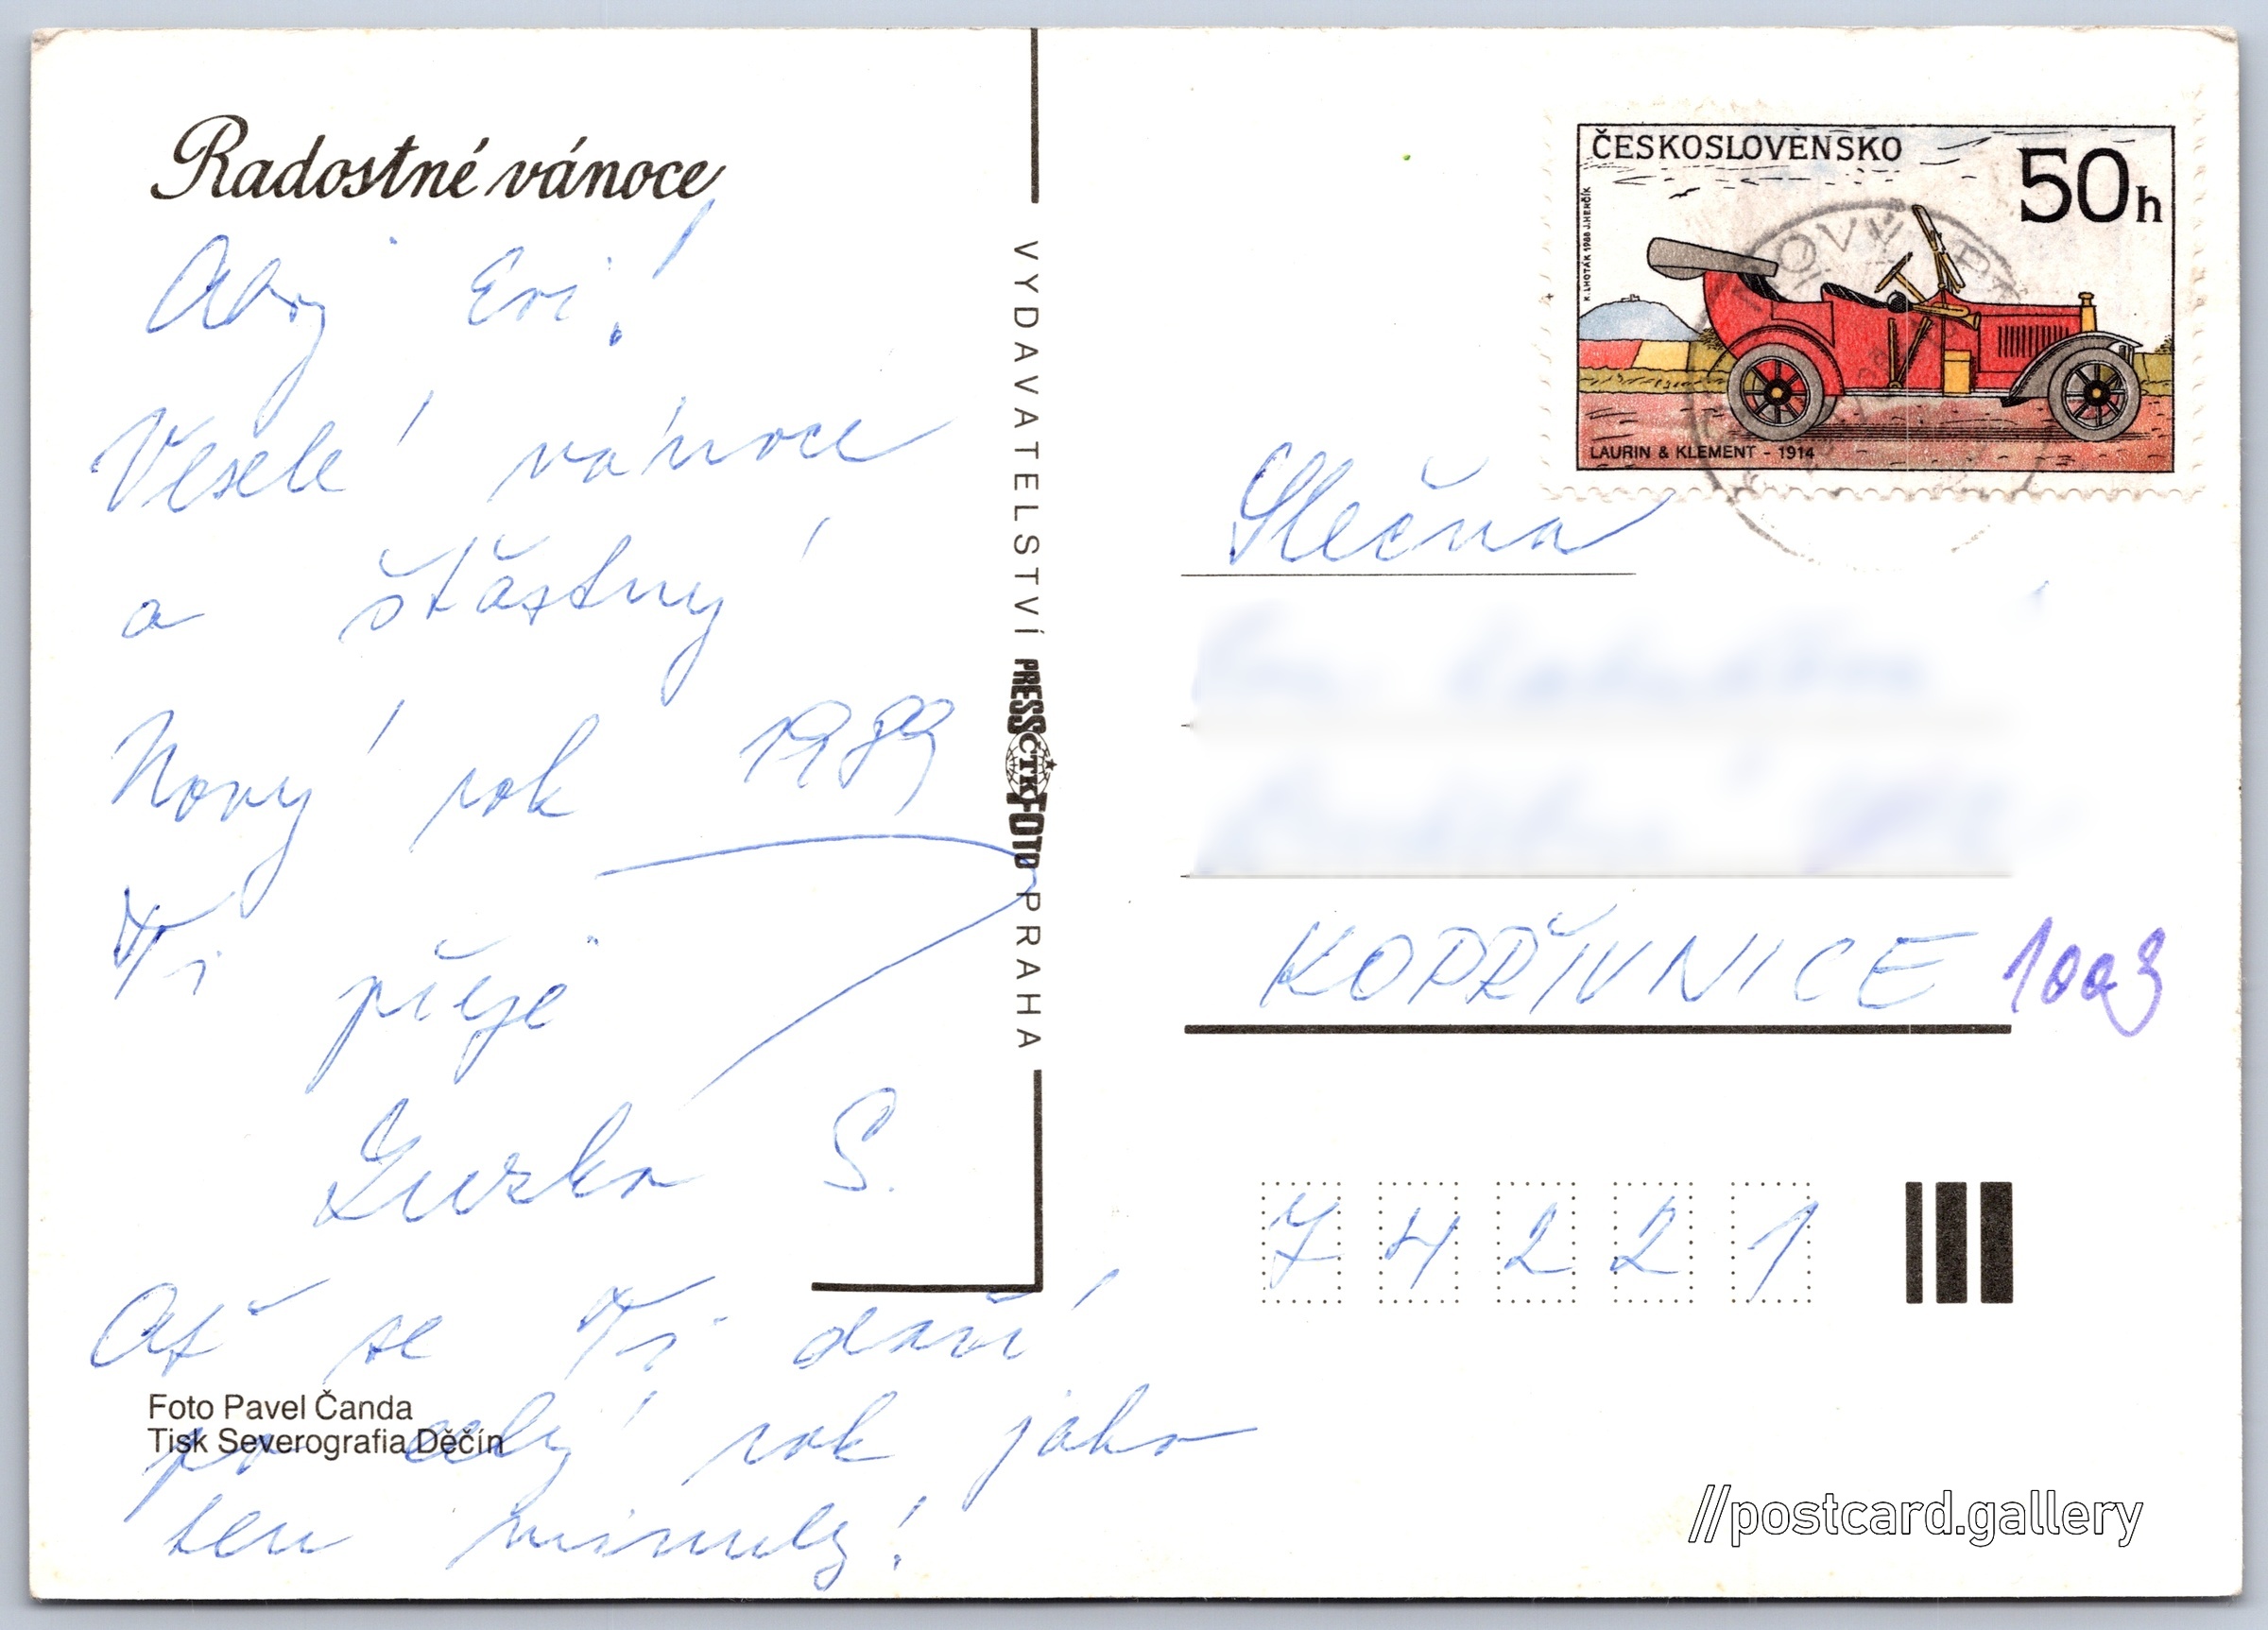 Radostné vánoce
Ahoj Evi!
Veselé vánoce
a šťastný
Nový rok 1989
Ti přeje
Zuzka S.
Ať se Ti daří
po celý rok jako
ten minulý!
Foto Pavel Čanda
Tisk Severografia Děčín
VYDAVATELSTVÍ PRESSČTKFOTO PRAHA
ČESKOSLOVENSKO
50h
K. LHOTÁK 1988 J. HERČÍK
LAURIN & KLEMENT - 1914
Slečna
KOPŘIVNICE
74221
//postcard.gallery